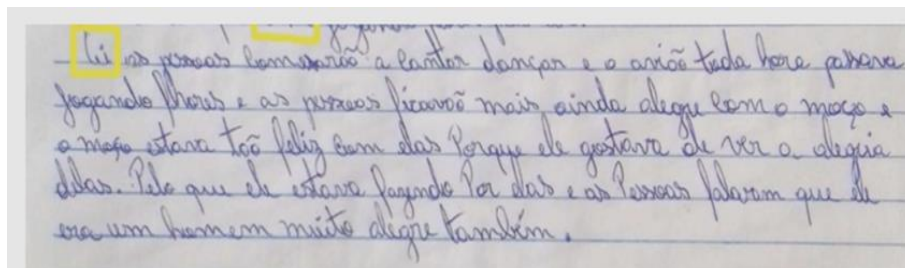 - Ci as pessoas comesarõo a cantar dançar e o aviõo toda hora passava
jogando flhores e as pessoas ficavoõ mais ainda alegre com o moço e
o moço estava tõo feliz com elas Porque ele gostava de ver a alegria
delas. Pelo que ele estava fazendo Por elas e as Pessoas falavam que ele
era um homem muito alegre também.